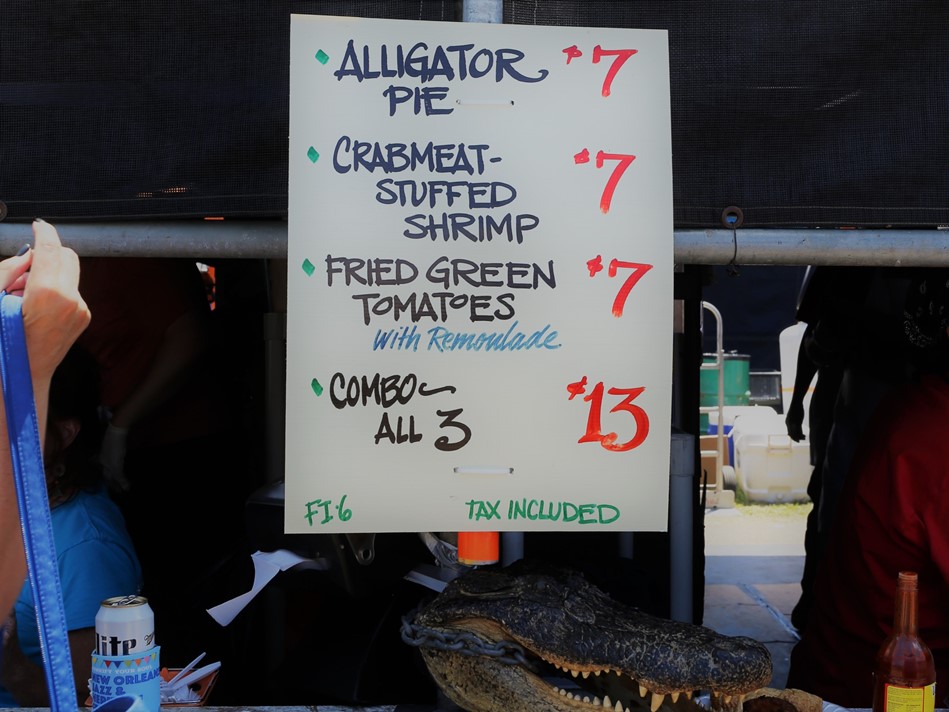 ALLIGATOR $7
PIE
CRABMEAT- $7
STUFFED
SHRIMP
FRIED GREEN $7
TOMATOES
with Remoulade
COMBO~ $13
ALL 3
FI·6 TAX INCLUDED
lite
NEW ORLEANS
JAZZ &